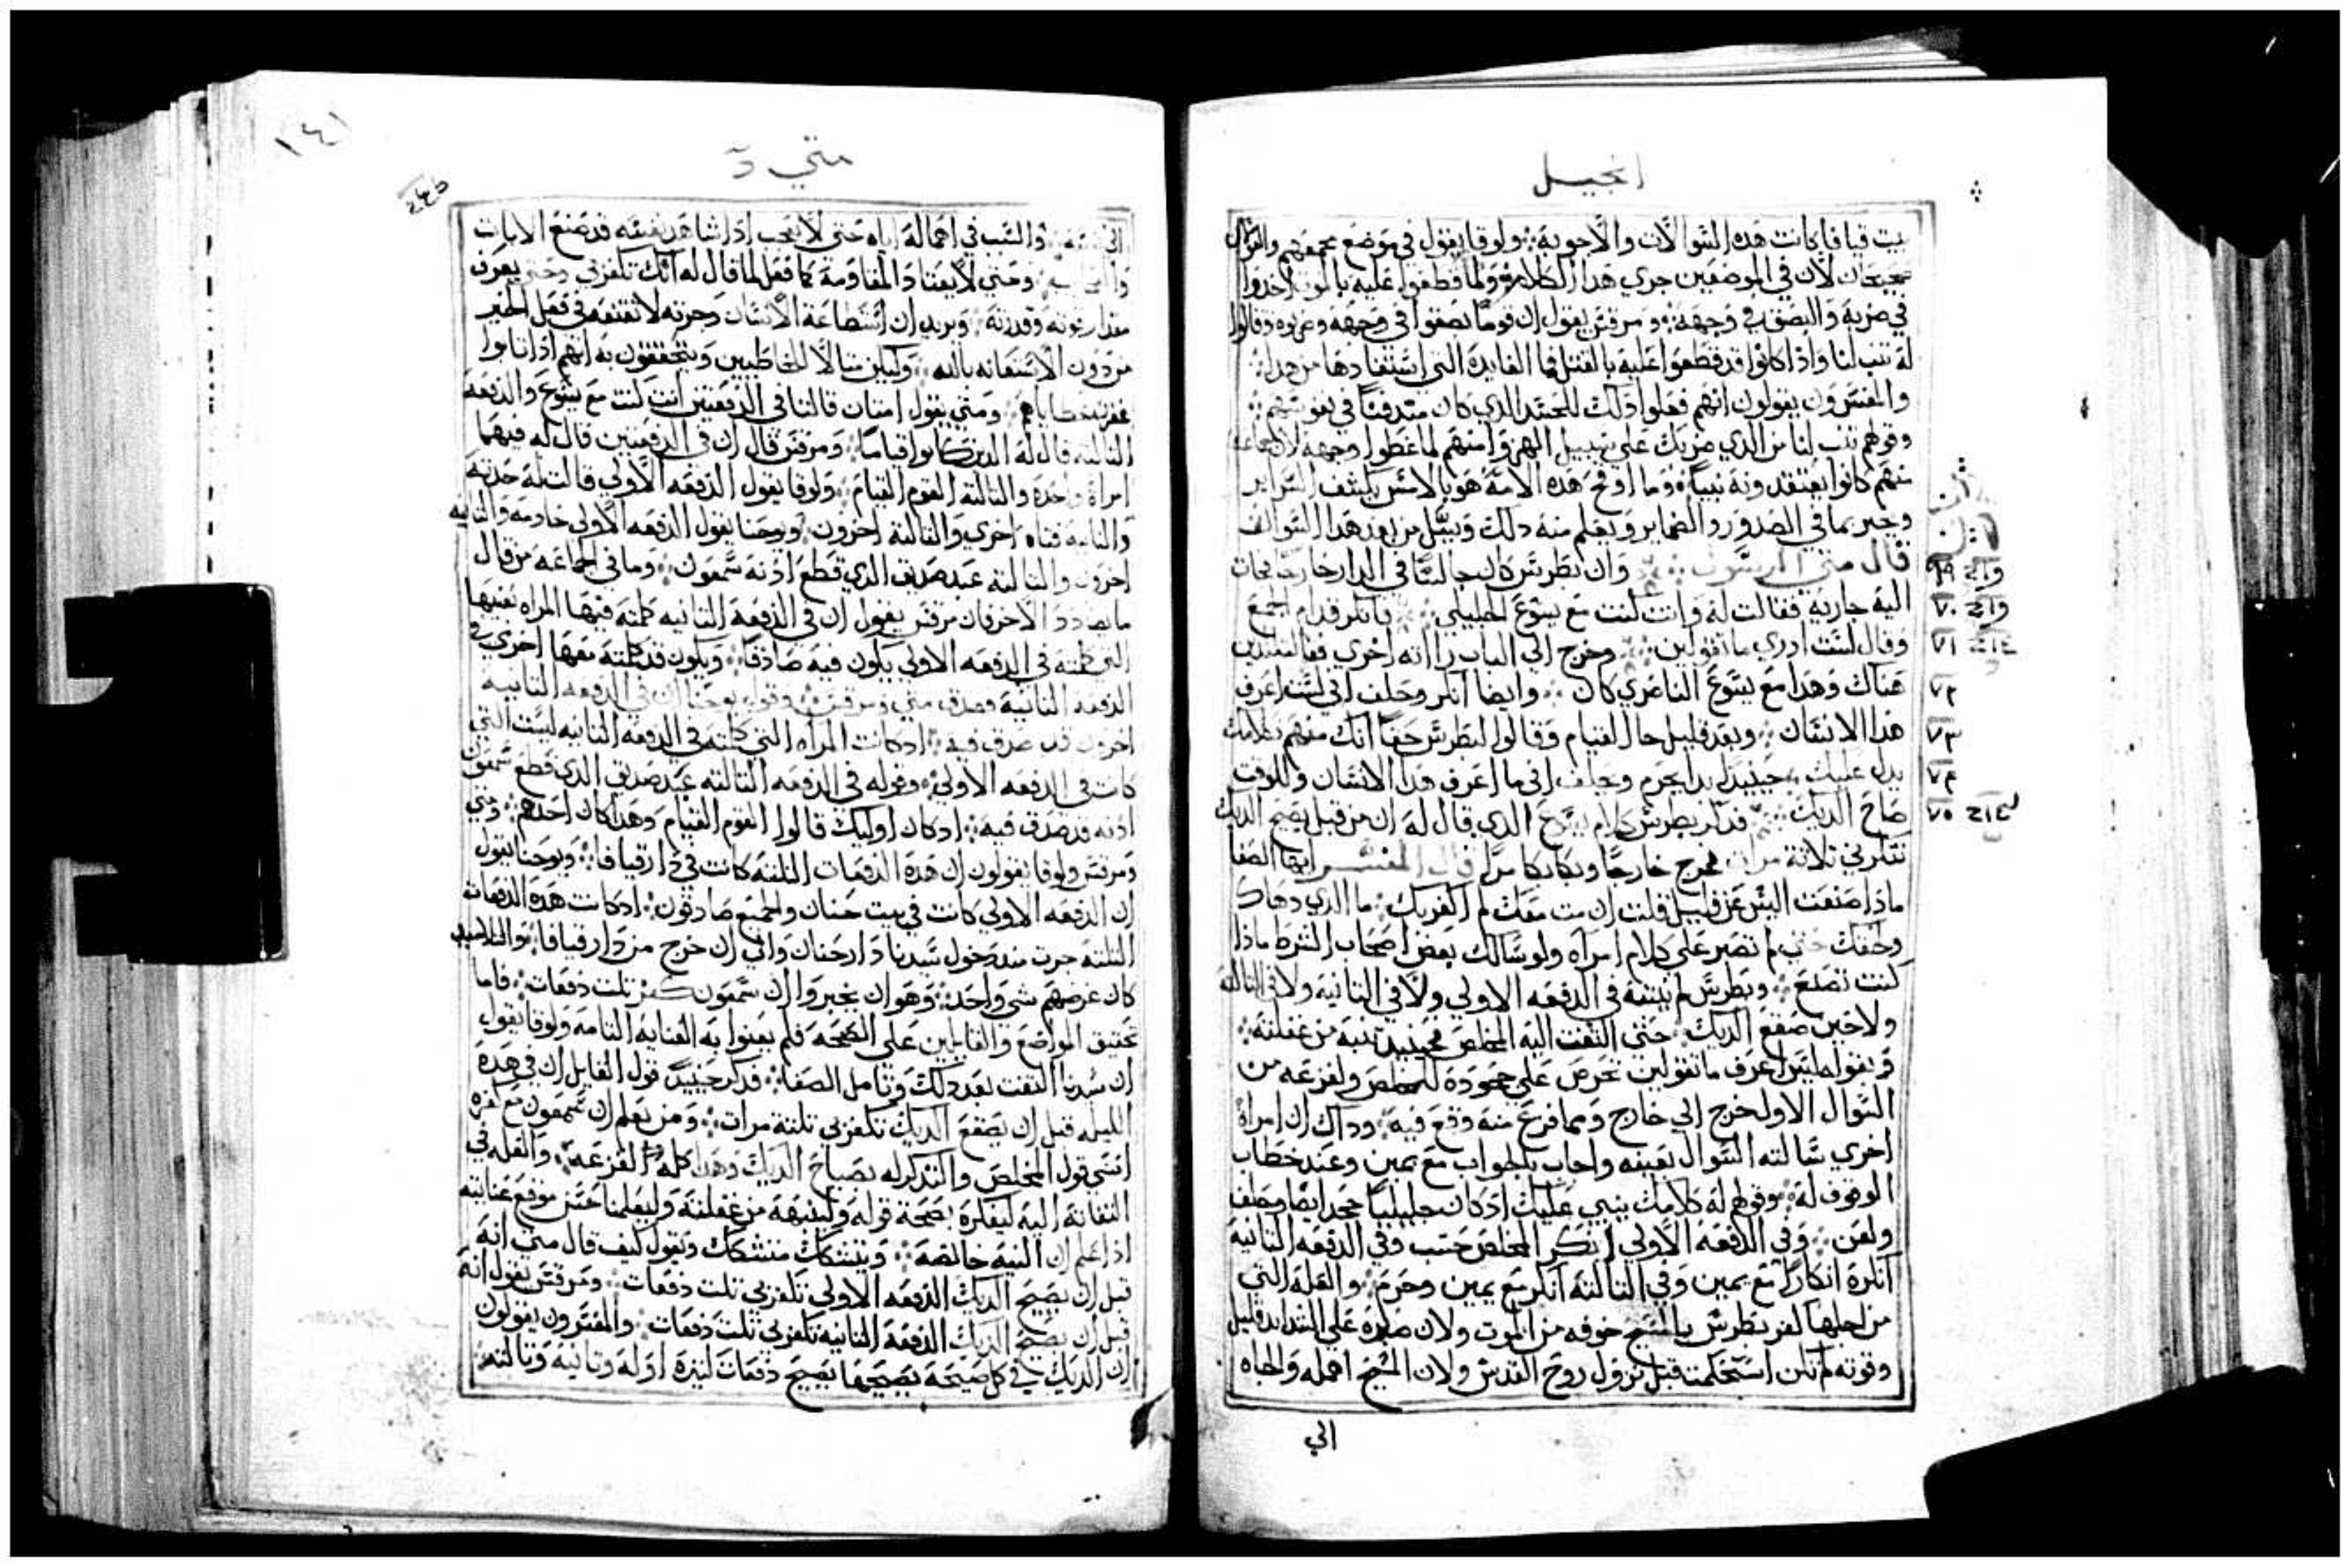 انجيل
بيت قيافا كانت هده السوالات والاجوبة ولوقا يقول في موضع مجمعهم والقولان
صحيحان لان في الموضعين جري هدا الكلام ولما قطعوا عليه بالموت اخدوا
في ضربه والبصق في وجهه ومرقس يقول ان قوما بصقوا في وجهه وضربوه وقالوا
له تنب لنا واذ كانوا قد قطعوا عليه بالقتل فما الفايده التي استفادها من هدا
والمفسرون يقولون انهم فعلوا دلك للحسد الدي كان متدفنا في نفوسهم
وقولهم تنب لنا من الدي ضربك علي سبيل الهزو امنهم لما غطوا وجهه لان جماعة
منهم كانوا يعتقدونه نبيا وما اوقح هده الامة هو بالامس يكشف السراير
وخبر بما في الصدور والضماير ويعلم منه دلك ويسل من بعد هدا السوالف
قال متي الرسول وان بطرس كان جالسا في الدار خارجا فجات
اليه جاريه فقالت له وانت كنت مع يسوع الجليلي فانكر قدام الجميع
وقال لست ادري ما تقولين وخرج الي الباب راته اخري فقالت للدين
هناك وهدا مع يسوع الناصري كان وايضا انكر وحلف اني لست اعرف
هدا الانسان وبعد قليل جا القيام وقالوا لبطرس حقا انك منهم وكلامك
يدل عليك حينيد بدا يحرم ويحلف اني ما اعرف هدا الانسان وللوقت
صاح الديك فدكر بطرس كلام يسوع الدي قال له ان من قبل يصيح الديك
تنكرني ثلاثة مرات فخرج خارجا وبكا بكا مرا قال المفسر ايها الصفا
ماذا صنعت اليس عن قليل قلت ان مت معك لم اكفر بك ما الدي دهاك
ولحقك حتي لم تصبر علي كلام امراه ولو سالك بعض اصحاب الشرط ماذا
كنت تصنع وبطرس لم ينتبه في الدفعه الاولي ولا في الثانية ولا في الثالثه
ولا حين صقع الديك حتي التفت اليه المخلص فحينيد تنبه من غفلته
وبقوله ليس اعرف ما تقولين تحرص علي جحوده للمخلص ولفزعه من
السوال الاول خرج الي خارج ومما فزع منه وقع فيه وداك ان امراة
اخري سالته السوال بعينه واجاب بالجواب مع يمين وعند خطاب
الوقوف له وقولهم له كلامك ينبي عليك اذ كان جليليا جحد ايضا وحلف
ولعن وفي الدفعه الاولي انكر المخلص حسب وفي الدفعه الثانيه
انكره انكارا مع يمين وفي الثالثه انكر مع يمين وحرم والعله التي
من اجلها كفر بطرس بالمسيح خوفه من الموت ولان صبره علي الشدايد قليل
وقوته لم تكن استحكمت قبل نزول روح القدس ولان المسيح اهمله والجاه
الي
٦٩
٧٠
٧١
٧٢
٧٣
٧٤
٧٥
١٤١
متي
والسبب في اهماله اياه حتي لا يعجب اذا شاهد نفسه قد صنع الايات
وحتي لا يعتاد المقاومة كما فعل لما قال له انك تكفر بي وحتي يعرف
مقدار قوته وقدرته ويريد ان استطاعة الانسان وحريته لا تقنعه في فعل الخير
من دون الاستعانه بالله وليكن مثالا للخاطيين ويتحققون به انهم اذا تابوا
غفرت خطاياهم ومتي يقول امتان قالتا في الدفعتين انت كنت مع يسوع والدفعة
الثالثه قال له الدين كانوا قياما ومرقس قال ان في الدفعتين قال له فيهما
امراة واحدة والثالثه القوم القيام ولوقا يقول الدفعه الاولي قالت له حدثه
والثانية فتاه اخري والثالثة اخرون ويوحنا يقول الدفعه الاولي خادمه والثانيه
اخرون والثالثه عبد صديق الدي قطع ادنه سمعون وما في الجماعه من قال
ما يضادد الاخر فان مرقس يقول ان في الدفعة الثانيه كلمته فيها المراه بعينها
التي كلمته في الدفعه الاولي يكون فيه صادقا ويكون قد كلمته معها اخري في
الدفعه الثانية فصدق متي ومرقس وقول يوحنا ان في الدفعه الثانيه
اخرون قد صدق فيه ادكانت المراه التي كلمته في الدفعه الثانيه ليست التي
كانت في الدفعه الاولي وقوله في الدفعه الثالثه عبد صديق الدي قطع سمعون
ادنه قد صدق فيه ادكان اوليك قالوا القوم القيام وهدا كان احدهم ومتي
ومرقس ولوقا يقولون ان هده الدفعات الثلثه كانت في دار قيافا ويوحنا يقول
ان الدفعه الاولي كانت في بيت حنان والجميع صادقون ادكانت هده الدفعات
الثلثه جرت مند دخول سيدنا دار حنان والي ان خرج من دار قيافا والتلاميد
كان غرضهم شي واحد وهو ان يخبروا ان سمعون كفر ثلث دفعات فاما
تحقيق المواضع والقايلين علي الصحه فلم يعنوا به العنايه التامه ولوقا يقول
ان سيدنا التفت بعد دلك وتامل الصفا فدكر حينيد قول القايل ان في هده
الليله قبل ان يصقع الديك تكفر بي ثلثة مرات ومن يعلم ان سمعون مع كفره
انسي قول المخلص والتدكر له بصياح الديك وهدا كله الفزعه والعله في
التفاته اليه ليفكره بصحة قوله ولينبهه من غفلته وليعلمنا حسن موقع عنايته
اذا علم ان النية خالصة ويتشكك متشكك ويقول كيف قال متي انه
قبل ان يصيح الديك الدفعه الاولي تكفر بي ثلث دفعات ومرقس يقول انه
قبل ان يصيح الديك الدفعة الثانيه تكفر بي ثلث دفعات والمفسرون يقولون
ان الديك في كل صيحة يصيحها يصيح دفعات كثيرة اوله وثانية وثالثه